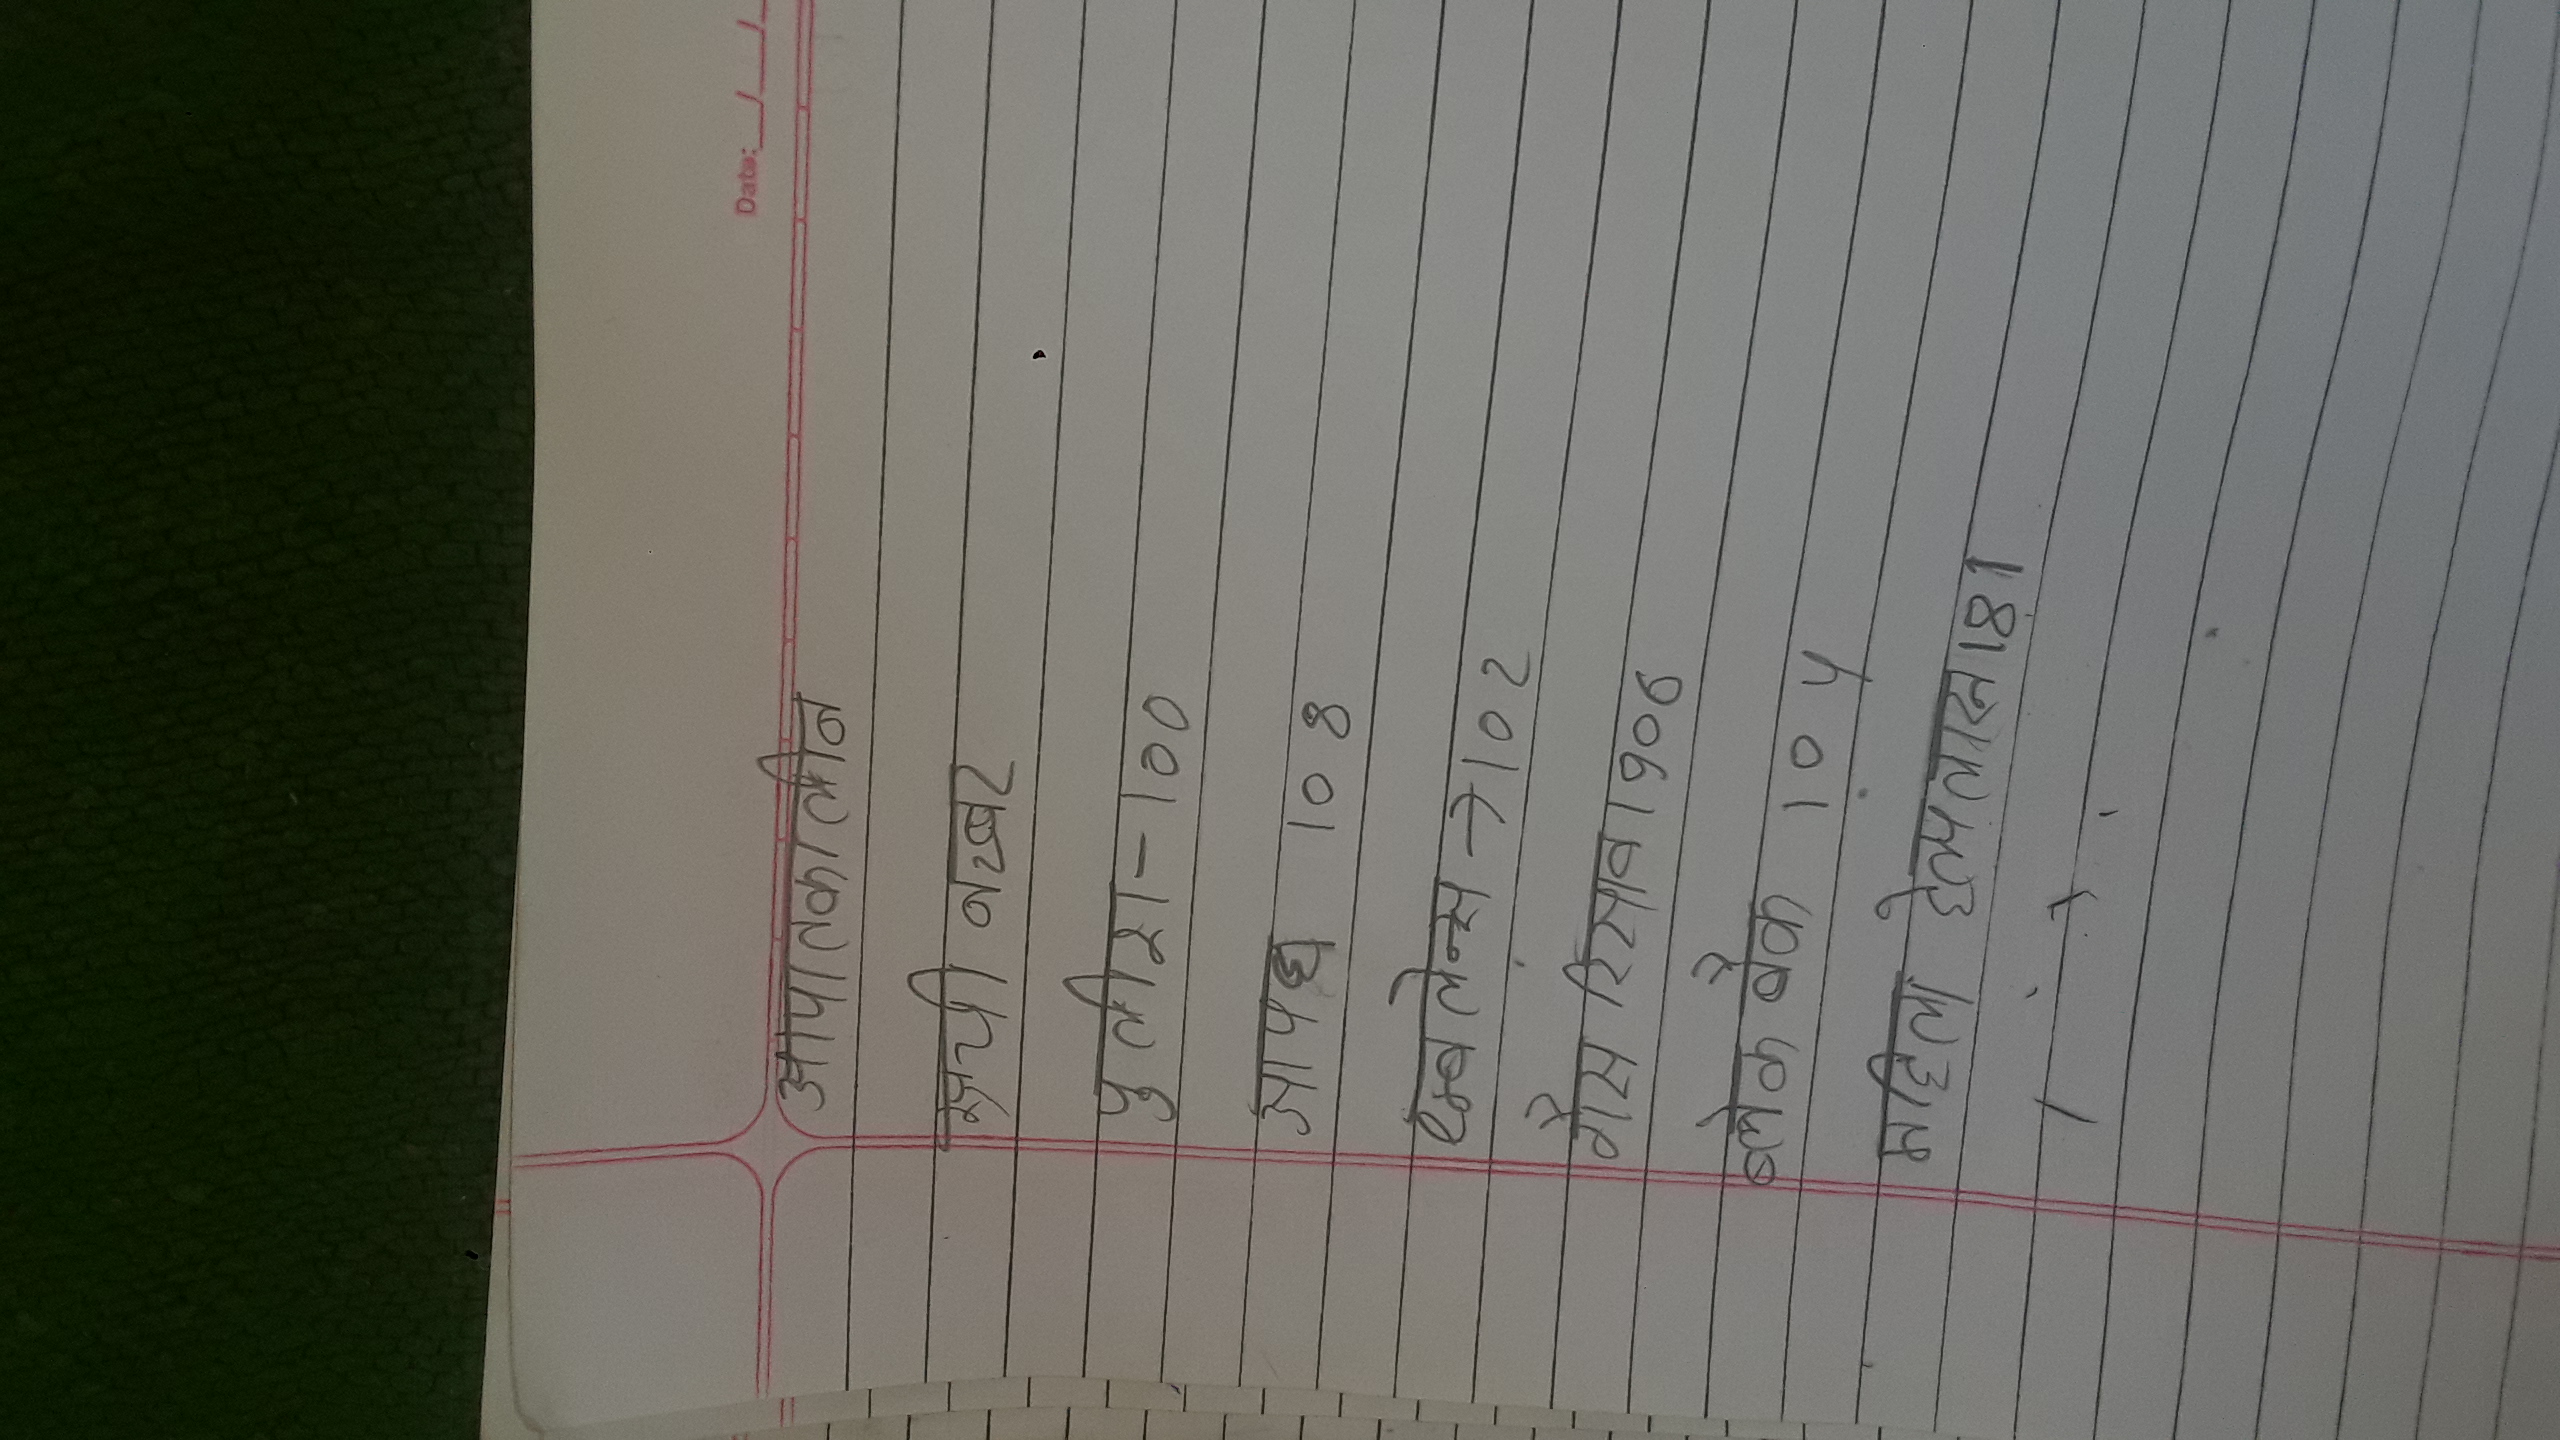 Date: __/__/__
आपातकालीन
सूची नम्बर
पुलीश-100
आपद्य 108
एम्बूलेन्स → 102
गैस रिसाव 1906
ब्लेक बेक 104
महिला हेल्पलाइन 181